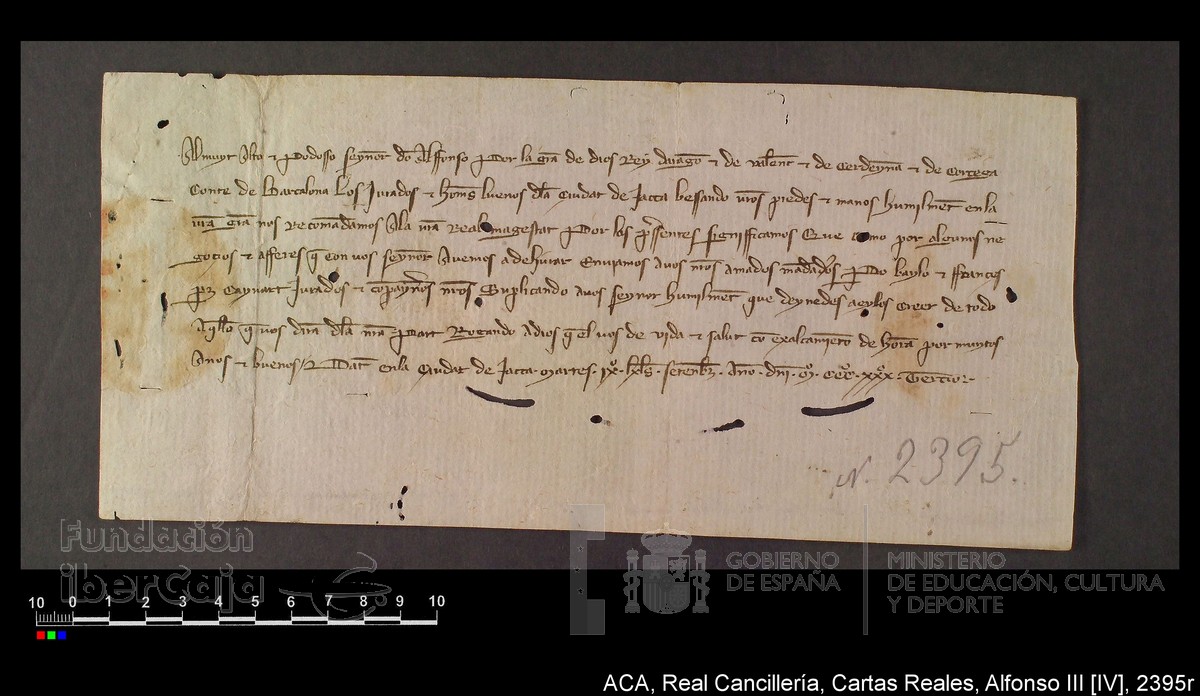 Al muyt Alto & Podosso seynor don Alffonso Por la gra de dios Rey daragon & de valent & de Cerdeynna & de Corcega
Conte de Barcalona Los Jurados & homs buenos dla Ciudat de Jacca bessando vros piedes & manos humilment en la
vra gra nos Recomandamos Ala vra Real magestat Por las pressentes significamos Que como por algunos ne
gocios & afferes q con vos seynor Avemos adeliurar Enviamos avos nros amados mandaderos Po baylo & ffrances
prz Caynart Jurados & conpayneros nros Suplicando avos seynor humilment que deynedes aeyllos creer de todo
Aqllo q vos diran dla nra Part Rogando Adios q el vos de vida & salut con exalcamiento de honra por muytos
Anos & buenos Dat en la Ciudat de Jacca martes .ixº. kls . setenbr . Ano . dni . mº. cccº. xxxº. Tercio.
N. 2395.
Fundación
ibercaja
GOBIERNO
DE ESPAÑA
MINISTERIO
DE EDUCACIÓN, CULTURA
Y DEPORTE
10 0 1 2 3 4 5 6 7 8 9 10
ACA, Real Cancillería, Cartas Reales, Alfonso III [IV], 2395r